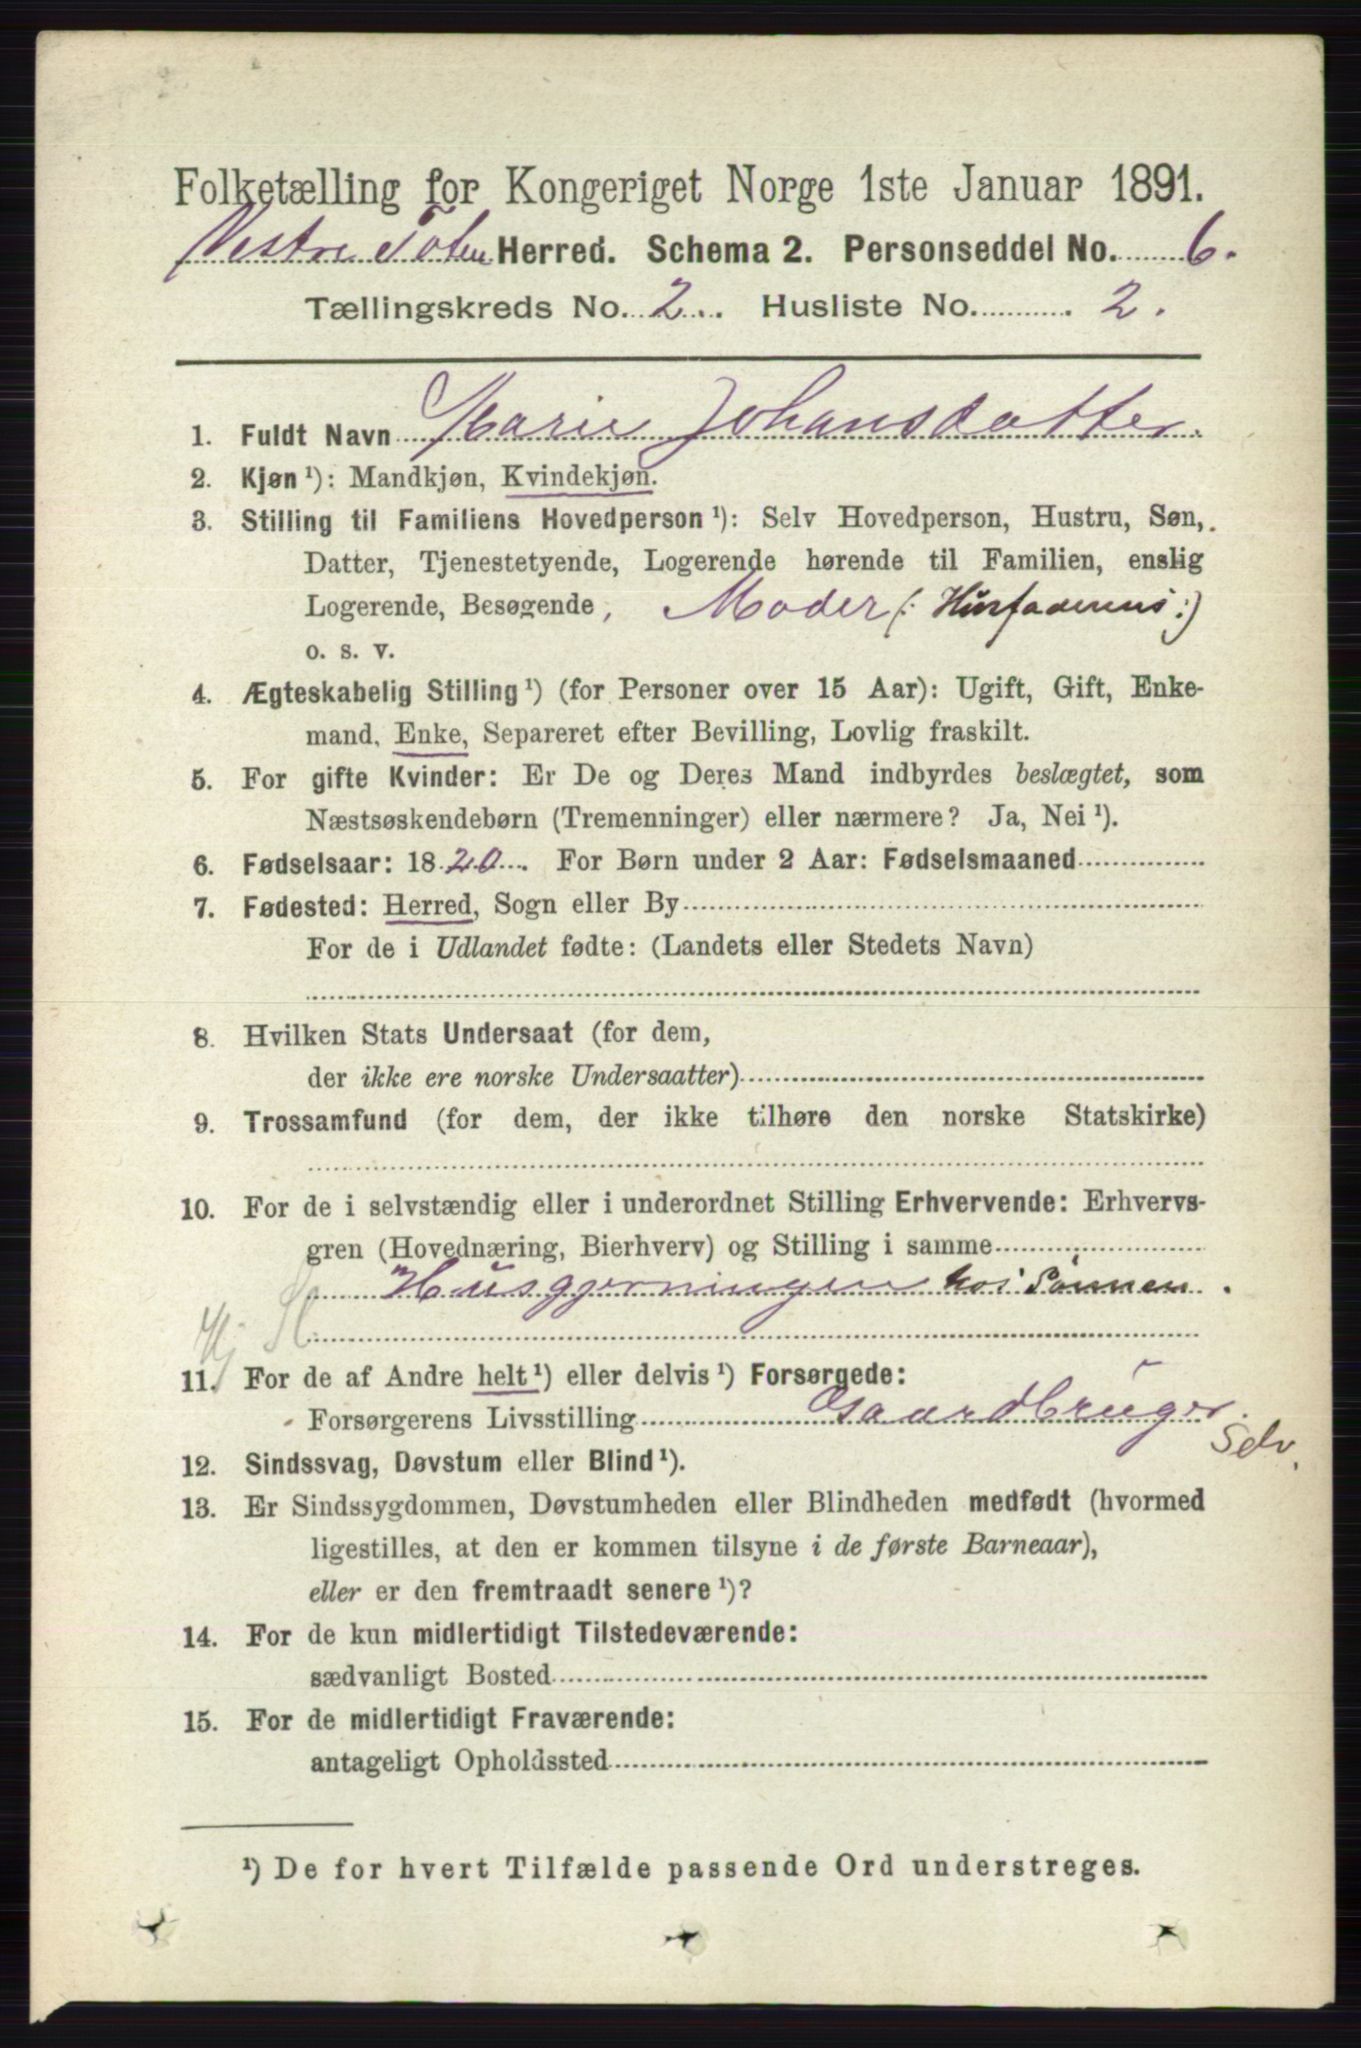 Folketælling for Kongeriget Norge 1ste Januar 1891.
Vestre Toten Herred. Schema 2. Personseddel No. 6.
Tællingskreds No. 2. Husliste No. 2.
1. Fuldt Navn Marie Johansdatter.
2. Kjøn ¹): Mandkjøn, Kvindekjøn.
3. Stilling til Familiens Hovedperson ¹): Selv Hovedperson, Hustru, Søn,
Datter, Tjenestetyende, Logerende hørende til Familien, enslig
Logerende, Besøgende, Moder (: Husfaderens :)
o. s. v.
4. Ægteskabelig Stilling ¹) (for Personer over 15 Aar): Ugift, Gift, Enke-
mand, Enke, Separeret efter Bevilling, Lovlig fraskilt.
5. For gifte Kvinder: Er De og Deres Mand indbyrdes beslægtet, som
Næstsøskendebørn (Tremenninger) eller nærmere? Ja, Nei ¹).
6. Fødselsaar: 1820. For Børn under 2 Aar: Fødselsmaaned
7. Fødested: Herred, Sogn eller By
For de i Udlandet fødte: (Landets eller Stedets Navn)
8. Hvilken Stats Undersaat (for dem,
der ikke ere norske Undersaatter)
9. Trossamfund (for dem, der ikke tilhøre den norske Statskirke)
10. For de i selvstændig eller i underordnet Stilling Erhvervende: Erhvervs-
gren (Hovednæring, Bierhverv) og Stilling i samme
Husgjerningen hos Sønnen.
11. For de af Andre helt ¹) eller delvis ¹) Forsørgede:
Forsørgerens Livsstilling Gaardbruger.
Selv.
12. Sindssvag, Døvstum eller Blind ¹).
13. Er Sindssygdommen, Døvstumheden eller Blindheden medfødt (hvormed
ligestilles, at den er kommen tilsyne i de første Barneaar),
eller er den fremtraadt senere ¹)?
14. For de kun midlertidigt Tilstedeværende:
sædvanligt Bosted
15. For de midlertidigt Fraværende:
antageligt Opholdssted
¹) De for hvert Tilfælde passende Ord understreges.